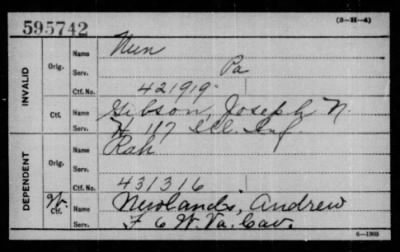 595742
(3-H-4)
INVALID
Orig.
Name Nun
Serv. Pa
Ctf. No. 421919
Ctf.
Name Gibson, Joseph N.
Serv. H 117 Ill. Inf
DEPENDENT
Orig.
Name Rah
Serv.
Ctf. No. 431316
W.
Ctf.
Name Newlands, Andrew
Serv. F 6 W. Va. Cav.
6-1903